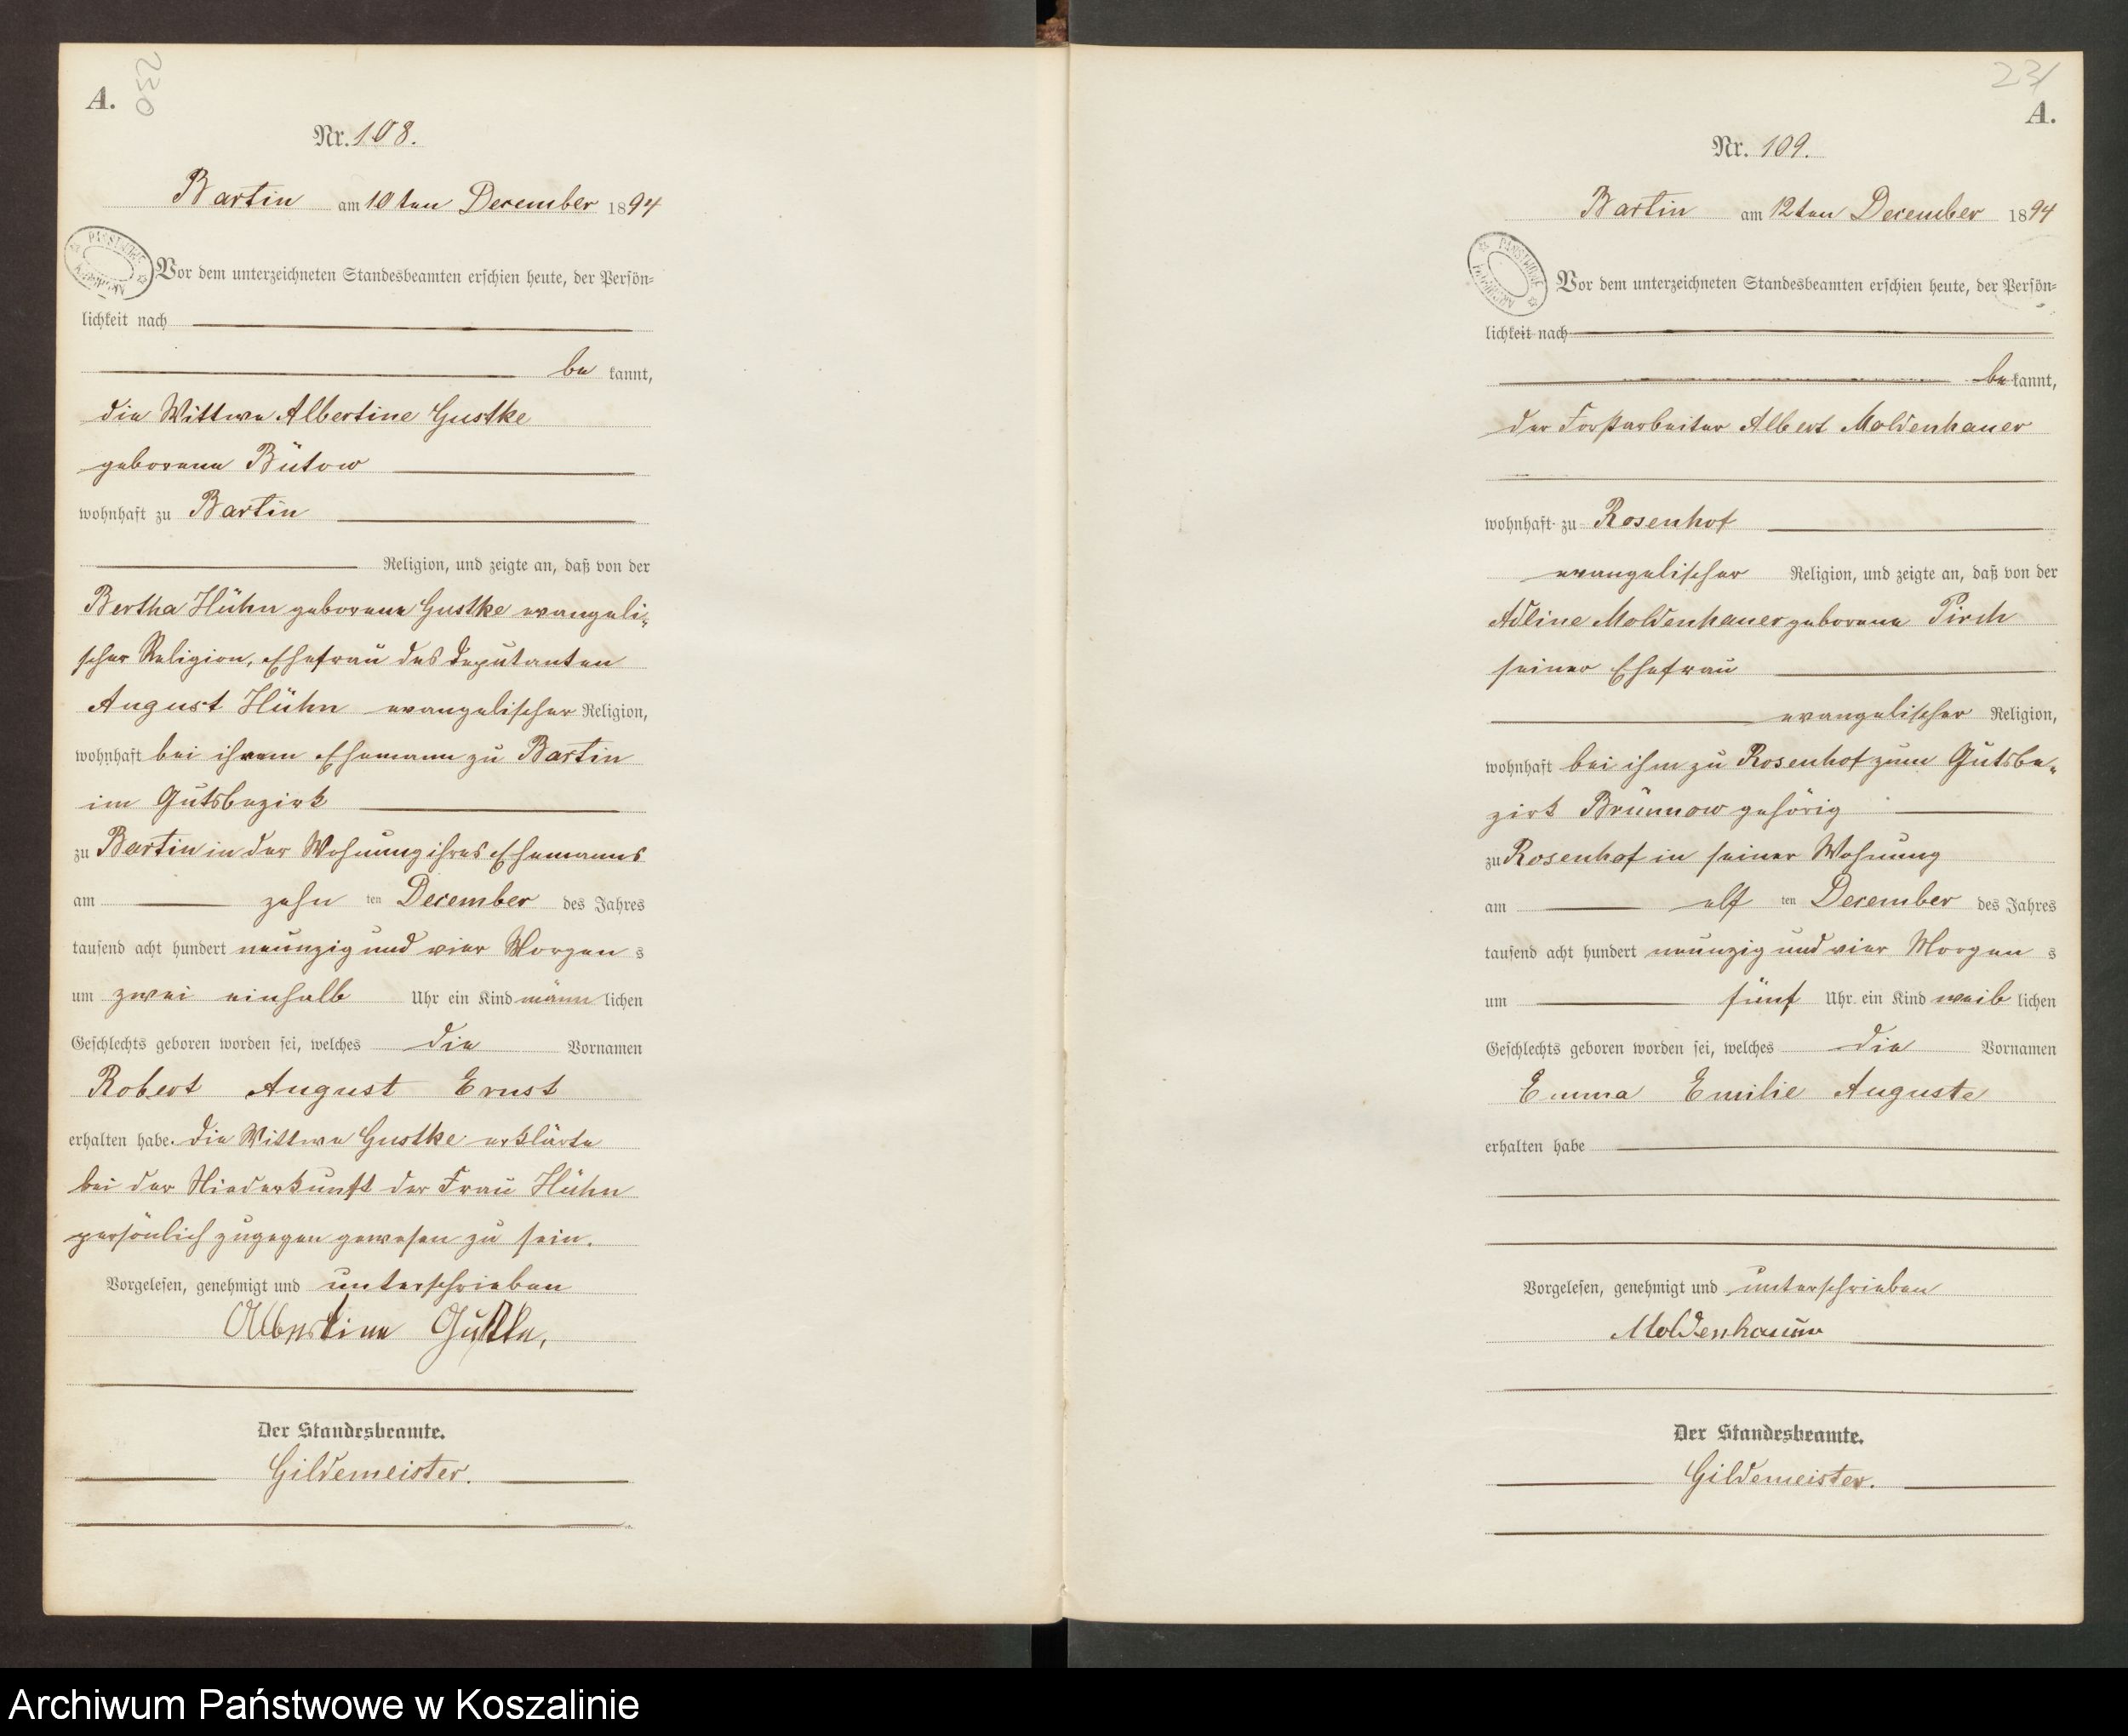 230
A.
Nr. 108.
Bartin am 10ten December 1894
Vor dem unterzeichneten Standesbeamten erschien heute, der Persön-
lichkeit nach
be kannt,
die Wittwe Albertine Gustke
geborene Bütow
wohnhaft zu Bartin
Religion, und zeigte an, daß von der
Bertha Hühn geborene Gustke evangeli-
scher Religion, Ehefrau des Deputanten
August Hühn evangelischer Religion,
wohnhaft bei ihrem Ehemann zu Bartin
im Gutsbezirk
zu Bartin in der Wohnung ihres Ehemanns
am zehn ten December des Jahres
tausend acht hundert neunzig und vier Morgen s
um zwei einhalb Uhr ein Kind männ lichen
Geschlechts geboren worden sei, welches die Vornamen
Robert August Ernst
erhalten habe. Die Wittwe Gustke erklärte
bei der Niederkunft der Frau Hühn
persönlich zugegen gewesen zu sein.
Vorgelesen, genehmigt und unterschrieben
Albertine Gustke,
Der Standesbeamte.
Gildemeister.
231
A.
Nr. 109.
Bartin am 12ten December 1894
PAŃSTWOWE
Vor dem unterzeichneten Standesbeamten erschien heute, der Persön-
lichkeit nach
be kannt,
der Forstarbeiter Albert Moldenhauer
wohnhaft zu Rosenhof
evangelischer Religion, und zeigte an, daß von der
Adline Moldenhauer geborene Pirch
seiner Ehefrau
evangelischer Religion,
wohnhaft bei ihm zu Rosenhof zum Gutsbe-
zirk Brünnow gehörig
zu Rosenhof in seiner Wohnung
am elf ten December des Jahres
tausend acht hundert neunzig und vier Morgen s
um fünf Uhr ein Kind weib lichen
Geschlechts geboren worden sei, welches die Vornamen
Emma Emilie Auguste
erhalten habe
Vorgelesen, genehmigt und unterschrieben
Moldenhauer
Der Standesbeamte.
Gildemeister.
Archiwum Państwowe w Koszalinie